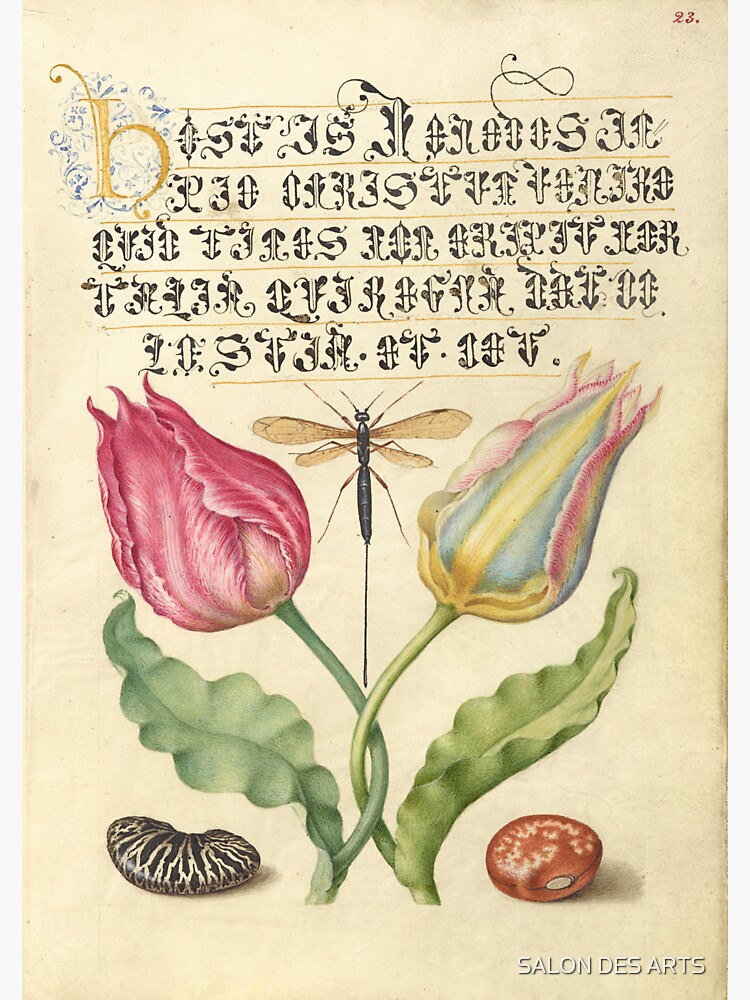 23.
HOSTIS HERODES IM=
PIE CHRISTVM VENIRE
QVID TIMES NON ERIPIT MOR
TALIA QVI REGNA DAT COE
LESTIA. ET. CET.
SALON DES ARTS